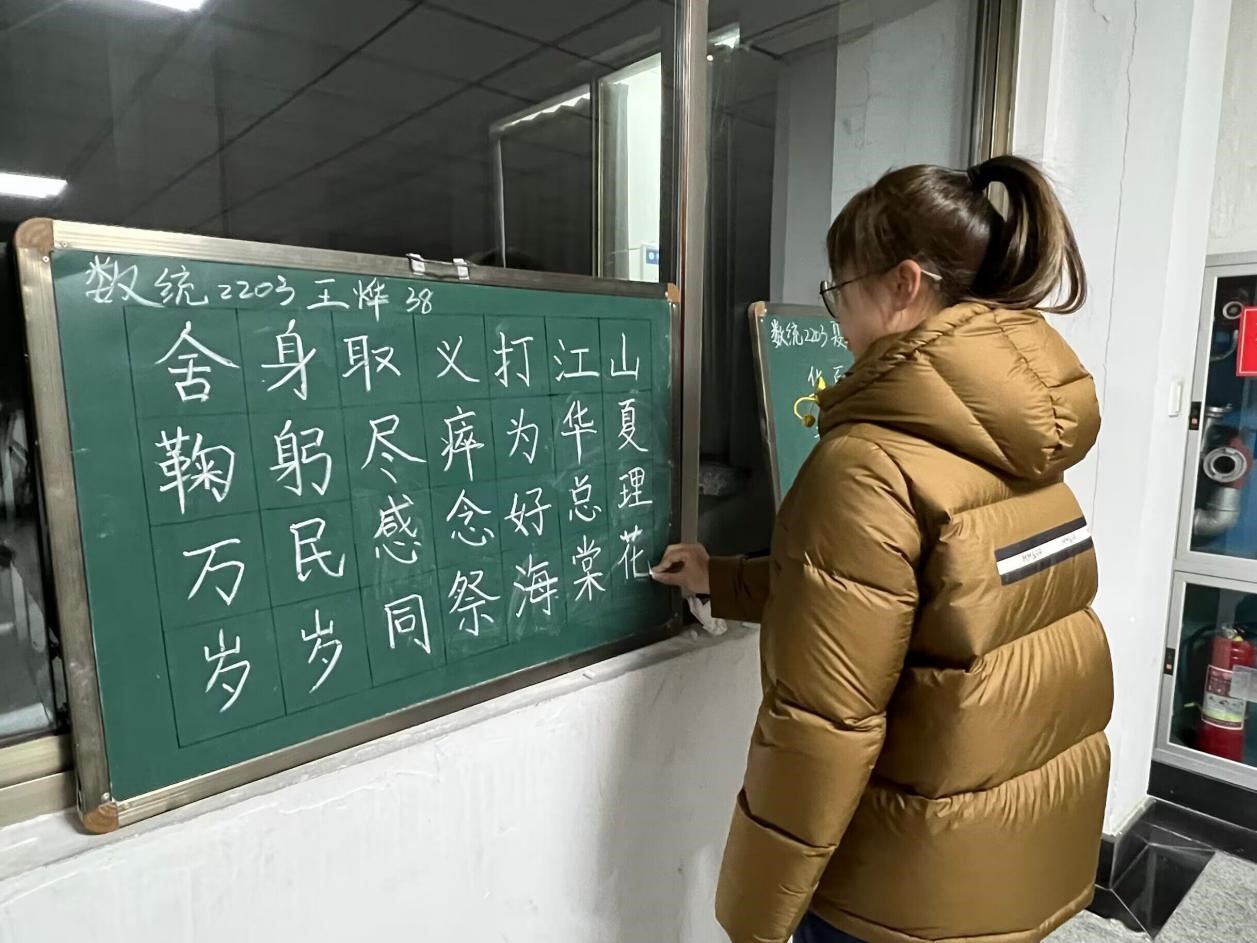 数统2203 王烨 38
舍身取义打江山
鞠躬尽瘁为华夏
万民感念好总理
岁岁同祭海棠花
数统2203